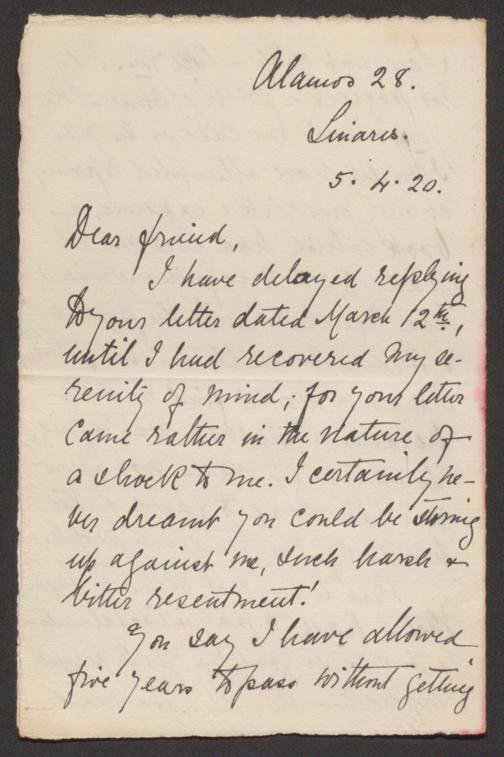 Alamos 28.
Linares.
5.4.20.
Dear friend,
I have delayed replying
to your letter dated March 12th,
until I had recovered my se-
renity of mind; for your letter
came rather in the nature of
a shock to me. I certainly ne-
ver dreamt you could be storing
up against me, such harsh &
bitter resentment!
You say I have allowed
five years to pass without getting